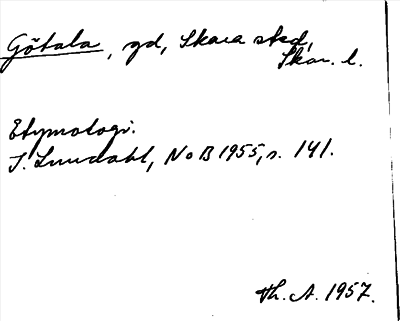 Götala, gd, Skara stad,
Skar. l.
Etymologi.
I. Lundahl, NoB 1955, s. 141.
Th. A. 1957.